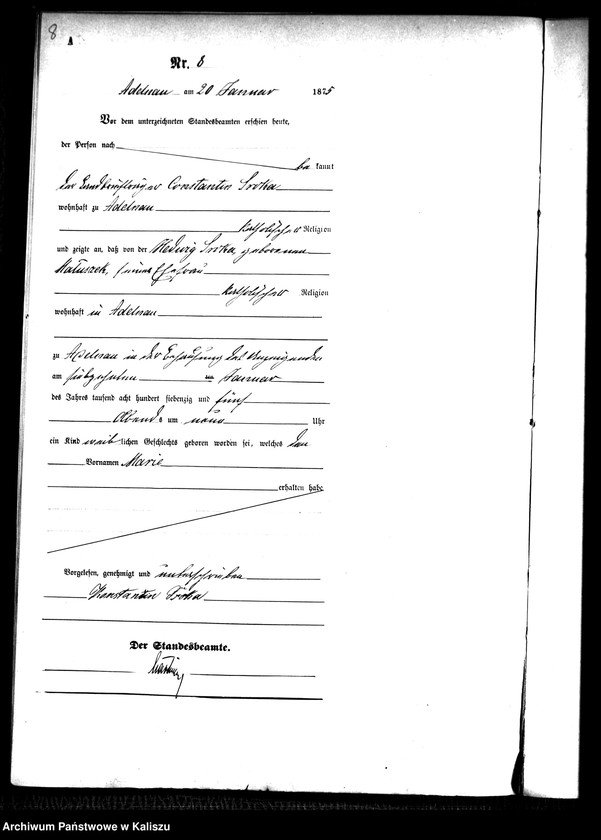 8
A
Nr. 8
Adelnau am 20 Januar 1875
Vor dem unterzeichneten Standesbeamten erschien heute,
der Person nach
bekannt
der Constantin Sroka
wohnhaft zu Adelnau
katholischer Religion
und zeigte an, daß von der Hedwig Sroka, geborenen
Matuszek, seiner Ehefrau
katholischer Religion
wohnhaft in Adelnau
zu Adelnau in der Behausung des Anzeigenden
am siebzehnten ten Januar
des Jahres tausend acht hundert siebenzig und fünf
Abends um neun Uhr
ein Kind weiblichen Geschlechts geboren worden sei, welches den
Vornamen Marie
erhalten habe
Vorgelesen, genehmigt und unterschrieben
Konstantin Sroka
Der Standesbeamte.
Archiwum Państwowe w Kaliszu